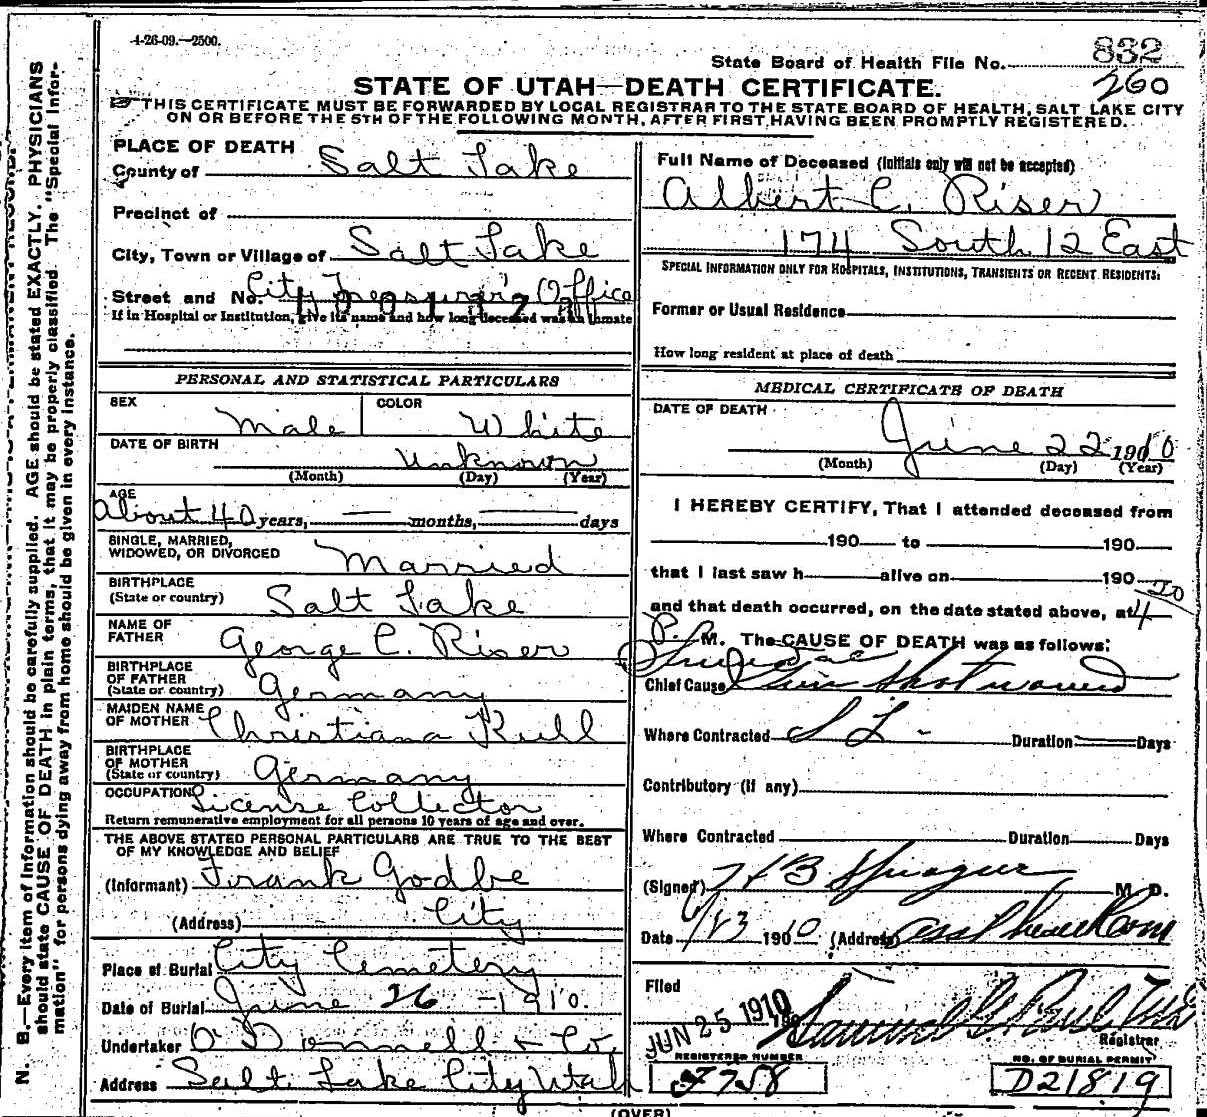 4-26-09.—2500.
State Board of Health File No. 832
260
STATE OF UTAH—DEATH CERTIFICATE.
THIS CERTIFICATE MUST BE FORWARDED BY LOCAL REGISTRAR TO THE STATE BOARD OF HEALTH, SALT LAKE CITY
ON OR BEFORE THE 5TH OF THE FOLLOWING MONTH, AFTER FIRST HAVING BEEN PROMPTLY REGISTERED.
N. B.—Every item of Information should be carefully supplied. AGE should be stated EXACTLY. PHYSICIANS
should state CAUSE OF DEATH in plain terms, that it may be properly classified. The "Special Infor-
mation" for persons dying away from home should be given in every instance.
PLACE OF DEATH
County of Salt Lake
Precinct of
City, Town or Village of Salt Lake
Street and No. City Treasurer's Office
If in Hospital or Institution, give its name and how long deceased was an inmate
PERSONAL AND STATISTICAL PARTICULARS
SEX Male COLOR White
DATE OF BIRTH Unknown
(Month) (Day) (Year)
AGE
About 40 years, — months, — days
SINGLE, MARRIED,
WIDOWED, OR DIVORCED Married
BIRTHPLACE
(State or country) Salt Lake
NAME OF
FATHER George C. Riser
BIRTHPLACE
OF FATHER
(State or country) Germany
MAIDEN NAME
OF MOTHER Christiana Kull
BIRTHPLACE
OF MOTHER
(State or country) Germany
OCCUPATION License Collector
Return remunerative employment for all persons 10 years of age and over.
THE ABOVE STATED PERSONAL PARTICULARS ARE TRUE TO THE BEST
OF MY KNOWLEDGE AND BELIEF
(Informant) Frank Godbe
(Address) City
Place of Burial City Cemetery
Date of Burial June 26 - 1910.
Undertaker O'Donnell & Co.
Address Salt Lake City Utah
Full Name of Deceased (Initials only will not be accepted)
Albert C. Riser
174 South 12 East
SPECIAL INFORMATION ONLY FOR HOSPITALS, INSTITUTIONS, TRANSIENTS OR RECENT RESIDENTS:
Former or Usual Residence
How long resident at place of death
MEDICAL CERTIFICATE OF DEATH
DATE OF DEATH
June 22 1910
(Month) (Day) (Year)
I HEREBY CERTIFY, That I attended deceased from
190 to 190
that I last saw h alive on 190
and that death occurred, on the date stated above, at 4 20
P. M. The CAUSE OF DEATH was as follows:
Suicidal
Chief Cause Gun shot wound
Where Contracted S L - Duration Days
Contributory (if any)
Where Contracted Duration Days
(Signed) H B Sprague M. D.
Date 6/23 1900 (Address)
Filed
JUN 25 1910 Samuel G. Paul MD
Registrar
REGISTERED NUMBER NO. OF BURIAL PERMIT
F758 D21819
(OVER)